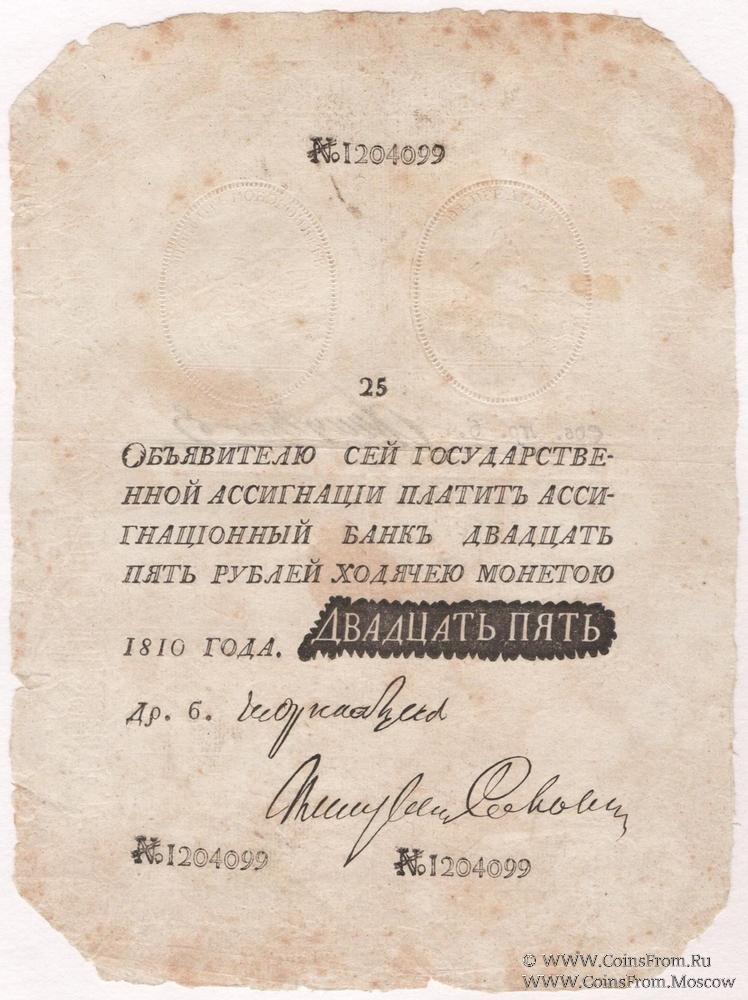 №1204099
25
ОБЪЯВИТЕЛЮ СЕЙ ГОСУДАРСТВЕ-
ННОЙ АССИГНАЦІИ ПЛАТИТЪ АССИ-
ГНАЦІОННЫЙ БАНКЪ ДВАДЦАТЬ
ПЯТЬ РУБЛЕЙ ХОДЯЧЕЮ МОНЕТОЮ
1810 ГОДА. ДВАДЦАТЬ ПЯТЬ
др. б.
№1204099 №1204099
© WWW.CoinsFrom.Ru
WWW.CoinsFrom.Moscow